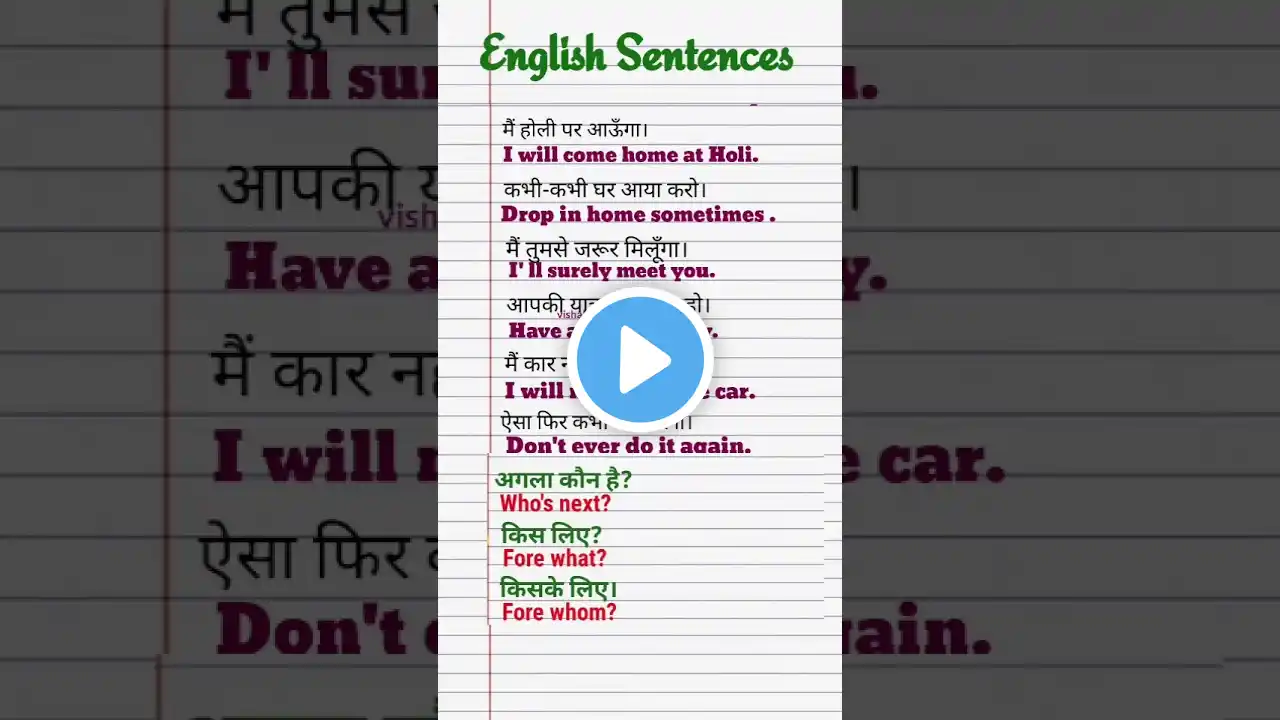 English Sentences
मैं होली पर आऊँगा।
I will come home at Holi.
कभी-कभी घर आया करो।
Drop in home sometimes .
मैं तुमसे जरूर मिलूँगा।
I' ll surely meet you.
आपकी हो।
Have
मैं कार
I will car.
ऐसा फिर
Don't ever do it again.
अगला कौन है?
Who's next?
किस लिए?
Fore what?
किसके लिए।
Fore whom?